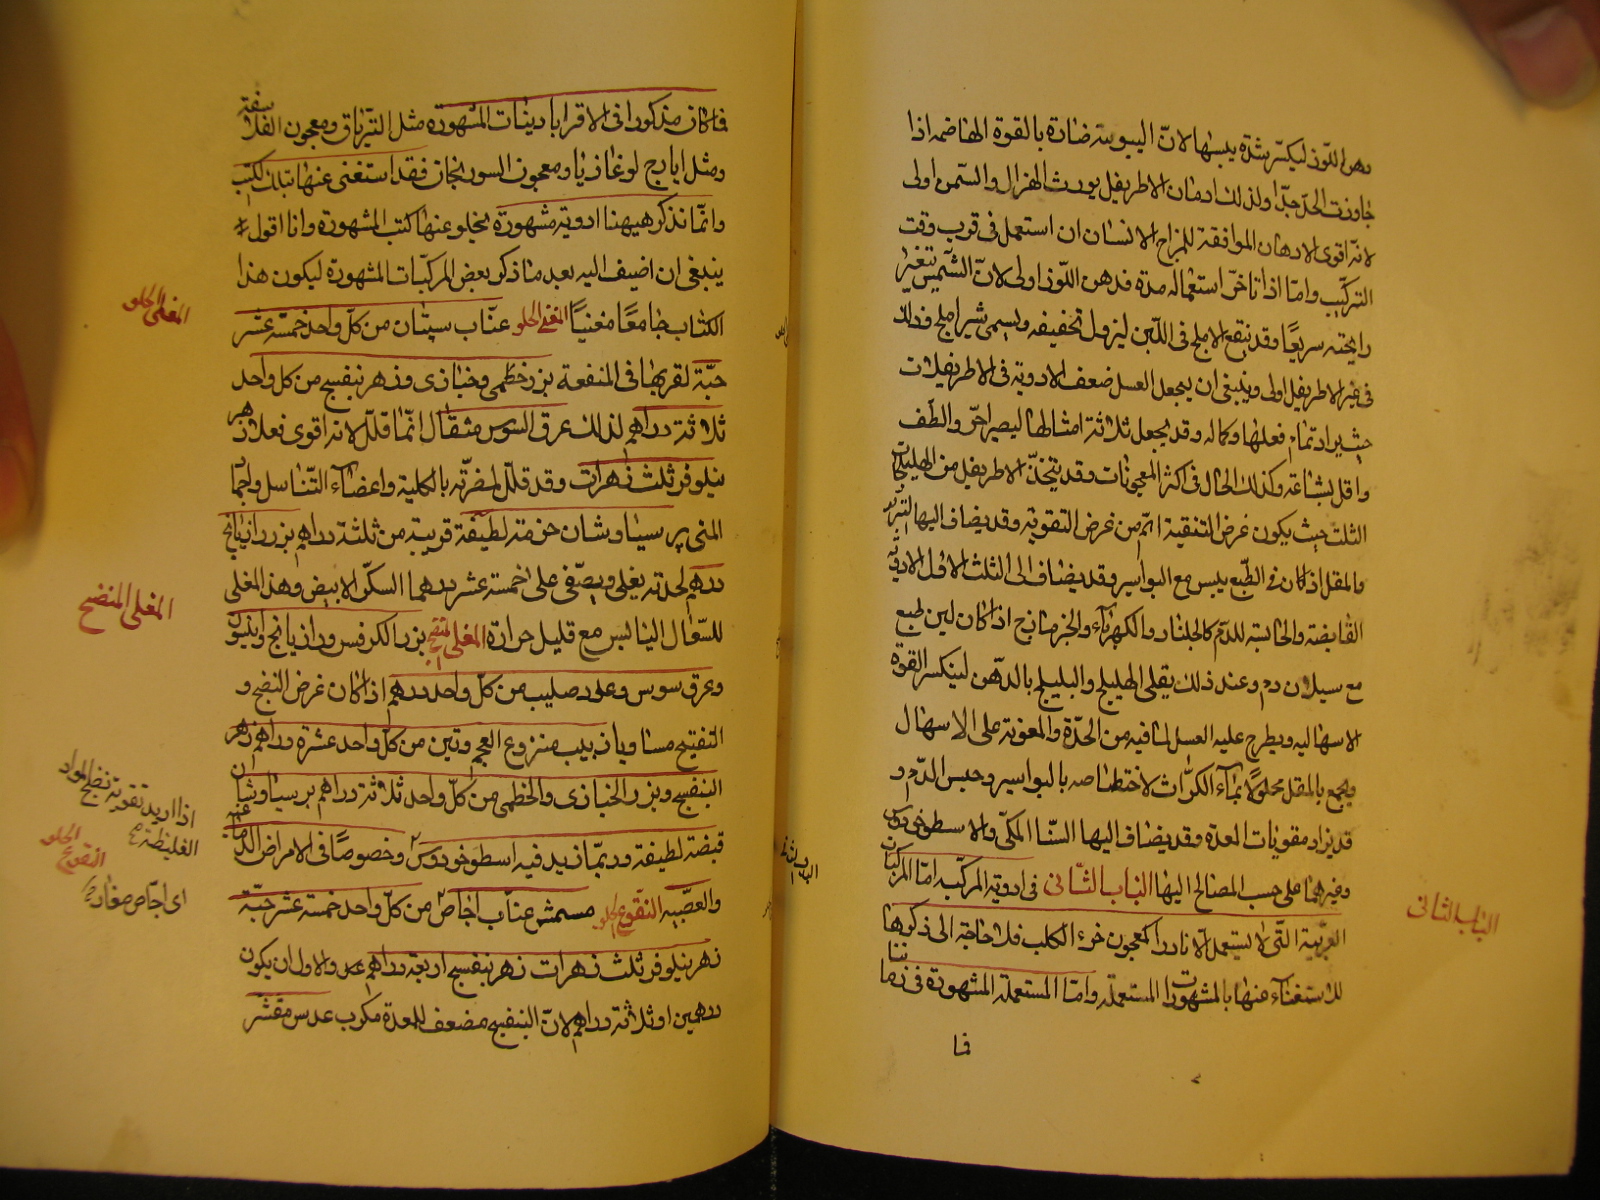 دهن اللّوز ليكسر شدة يبسها لانّ اليبوسة ضادة بالقوة الهاضمه اذا
جاوزت الحدّ جدّا ولذلك ادمان الاطريفل يورث الهزال والسّمن اولى
لانّه اقوى الادهان الموافقة للمزاج الانسان ان استعمل فى قرب وقت
التركيب وامّا اذا تاخّر استعماله مدة فدهن اللّوز اولى لانّ السّمن يتغيّر
رايحته سريعًا وقد ينقع الاملج فى اللّبن ليزول تخفيفه ويسمى شير املج وذلك
فى غير الاطريفل اولى وينبغى ان يجعل العسل ضعف الادوية فى الاطريفلات
حتى يراد تمام فعلها وكماله وقد يجعل ثلاثة امثالها ليصير احرّ والطف
واقل بشاعة وكذلك الحال فى اكثر المعجونات وقد يتّخذ الاطريفل من الهليلجات
الثلث حيث يكون غرض التنقية اتمّ من غرض التقوية وقد يضاف اليها التربد
والمقل اذا كان فى الطّبع يبس مع البواسير وقد يضاف الى الثلث الاول الادوية
القابضة والحابسة للدّم كالجلنار والكهرباء والخزمازج اذا كان لين طبع
مع سيلان دم وعند ذلك يقلى الهليلج والبليلج بالدّهن لينكسر القوة
الاسهاليه ويطرح عليه العسل لما فيه من الحدّة والمعونة على الاسهال
ويجمع بالمقل محلولاً بماء الكرّاث لاختصاصه بالبواسير وحبس الدّم و
قد يزاد مقويات المعدة وقد يضاف اليها السّنا المكّى والاسطوخودوس
وغيرهما على حسب المصالح اليها الباب الثّانى فى ادوية المركّبه امّا المركّبات
الغريبة التّى لا يستعمل الا نادرا كمعجون خرء الكلب فلا حاجة الى ذكرها
للاستغناء عنها بالمشهورات المستعملة وامّا المستعملة المشهورة فى زماننا
فما
الباب الثانى
فما كان مذكورا فى الاقراباذينات المشهورة مثل التّرياق ومعجون الفلاسفة
ومثل ايارج لوغاذيا ومعجون السورنجان فقد استغنى عنها بتلك الكتب
وانّما نذكر هيهنا ادوية مشهورة يخلو عنها كتب المشهورة وانا اقول
ينبغى ان اضيف اليه بعد ما ذكر بعض المركّبات المشهورة ليكون هذا
الكتاب جامعًا مغنيًا المغلى الحلو عنّاب سپستان من كلّ واحد خمسة عشر
حبّة لقربها فى المنفعة بزر خطمى وخبازى وزهر بنفسج من كل واحد
ثلاثة دراهم لذلك عرق السوس مثقال انّما قلّل لانه اقوى فعلا زهر
نيلوفر ثلث زهرات وقد قلّل لمضرّته بالكلية واعضاء التّناسل واجماد
المنى پر سياوشان حزمة لطيفة قريبة من ثلثة دراهم بزر رازيانج
درهم لحدته يغلى ويصفّى على خمسة عشر درهما السكّر الابيض وهذا المغلى
للسّعال اليابس مع قليل حرارة المغلى منضج بزر الكرفس ورازيانج وانيسون
وعرق سوس وعود صليب من كلّ واحد درهم اذا كان غرض النضج و
التفتيح مساويان زبيب منزوع العجم وتين من كلّ واحد عشرة دراهم زهر
البنفسج وبزر الخبازى والخطمى من كلّ واحد ثلاثة دراهم برسياوشان
قبضة لطيفة وربّما زيد فيه اسطوخودوس وخصوصًا فى الامراض الدماغية
والعصبيه النقوع الحلو مسمش عنّاب اجاص من كلّ واحد خمسة عشر حبّة
زهر نيلوفر ثلث زهرات زهر بنفسج اربعة دراهم والاول ان يكون
درهمين او ثلاثة دراهم لانّ البنفسج مضعف للمعدة مكرب عدس مقشّر
المغلى الحلو
المغلى المنضج
اذا اريد تقوية نضج المواد
الغليظة
النقوع الحلو
اى اجّاص صغار